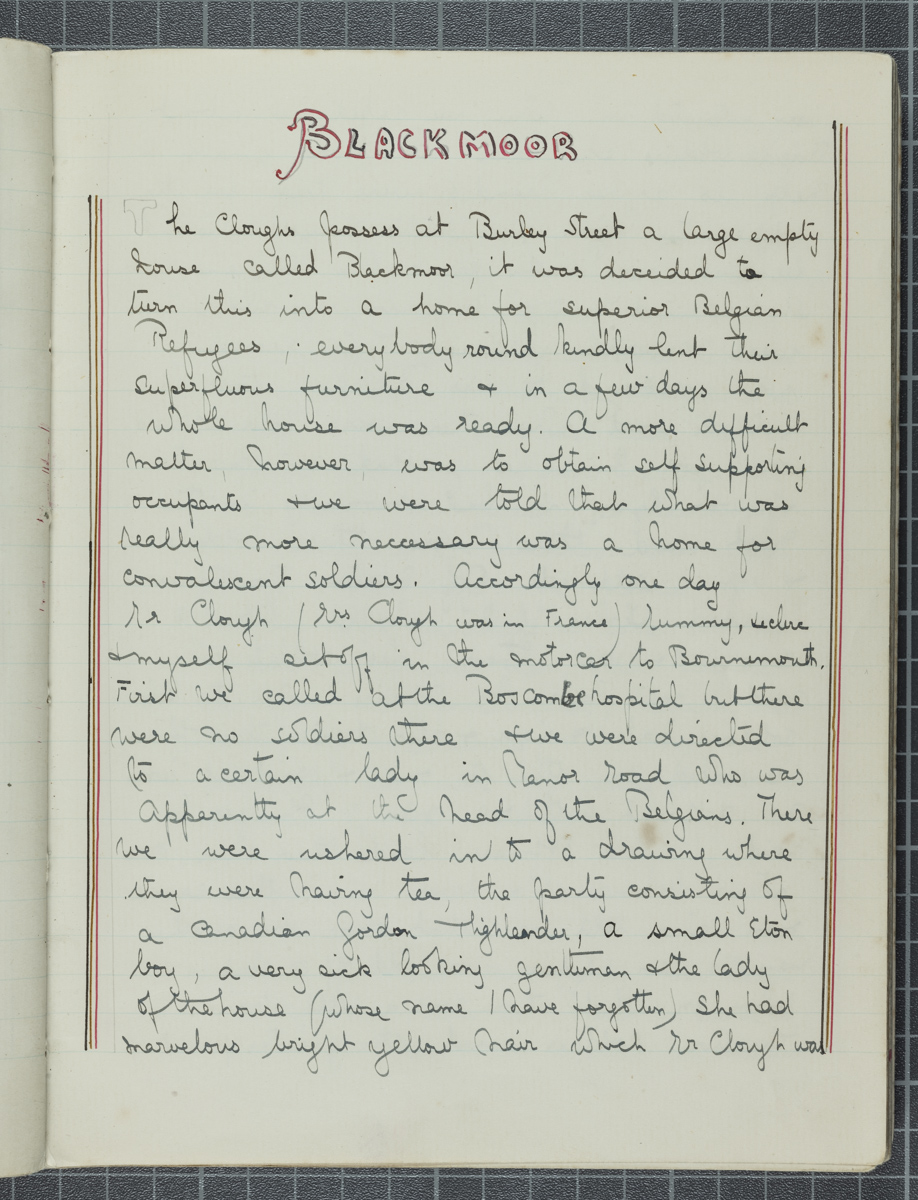 BLACKMOOR
The Cloughs possess at Burley Street a large empty
house called Blackmoor, it was deceided to
turn this into a home for superior Belgian
Refugees, everybody round kindly lent their
superfluous furniture & in a few days the
whole house was ready. A more difficult
matter, however, was to obtain self supporting
occupants & we were told that what was
really more necessary was a home for
convalescent soldiers. Accordingly one day
Mr Clough (Mrs Clough was in France) Mummy,
& myself set off in the motorcar to Bournemouth.
First we called at the Boscombe hospital but there
were no soldiers there & we were directed
to a certain lady in Manor Road who was
apparently at the head of the Belgians. There
we were ushered in to a drawing where
they were having tea, the party consisting of
a Canadian Gordon Highlander, a small Eton
boy, a very sick looking gentleman & the lady
of the house (whose name I have forgotten) She had
marvelous bright yellow hair which Mr Clough was